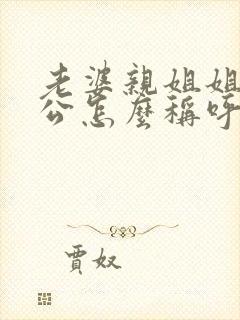 老婆親姐姐
公怎麼稱呼
賈奴